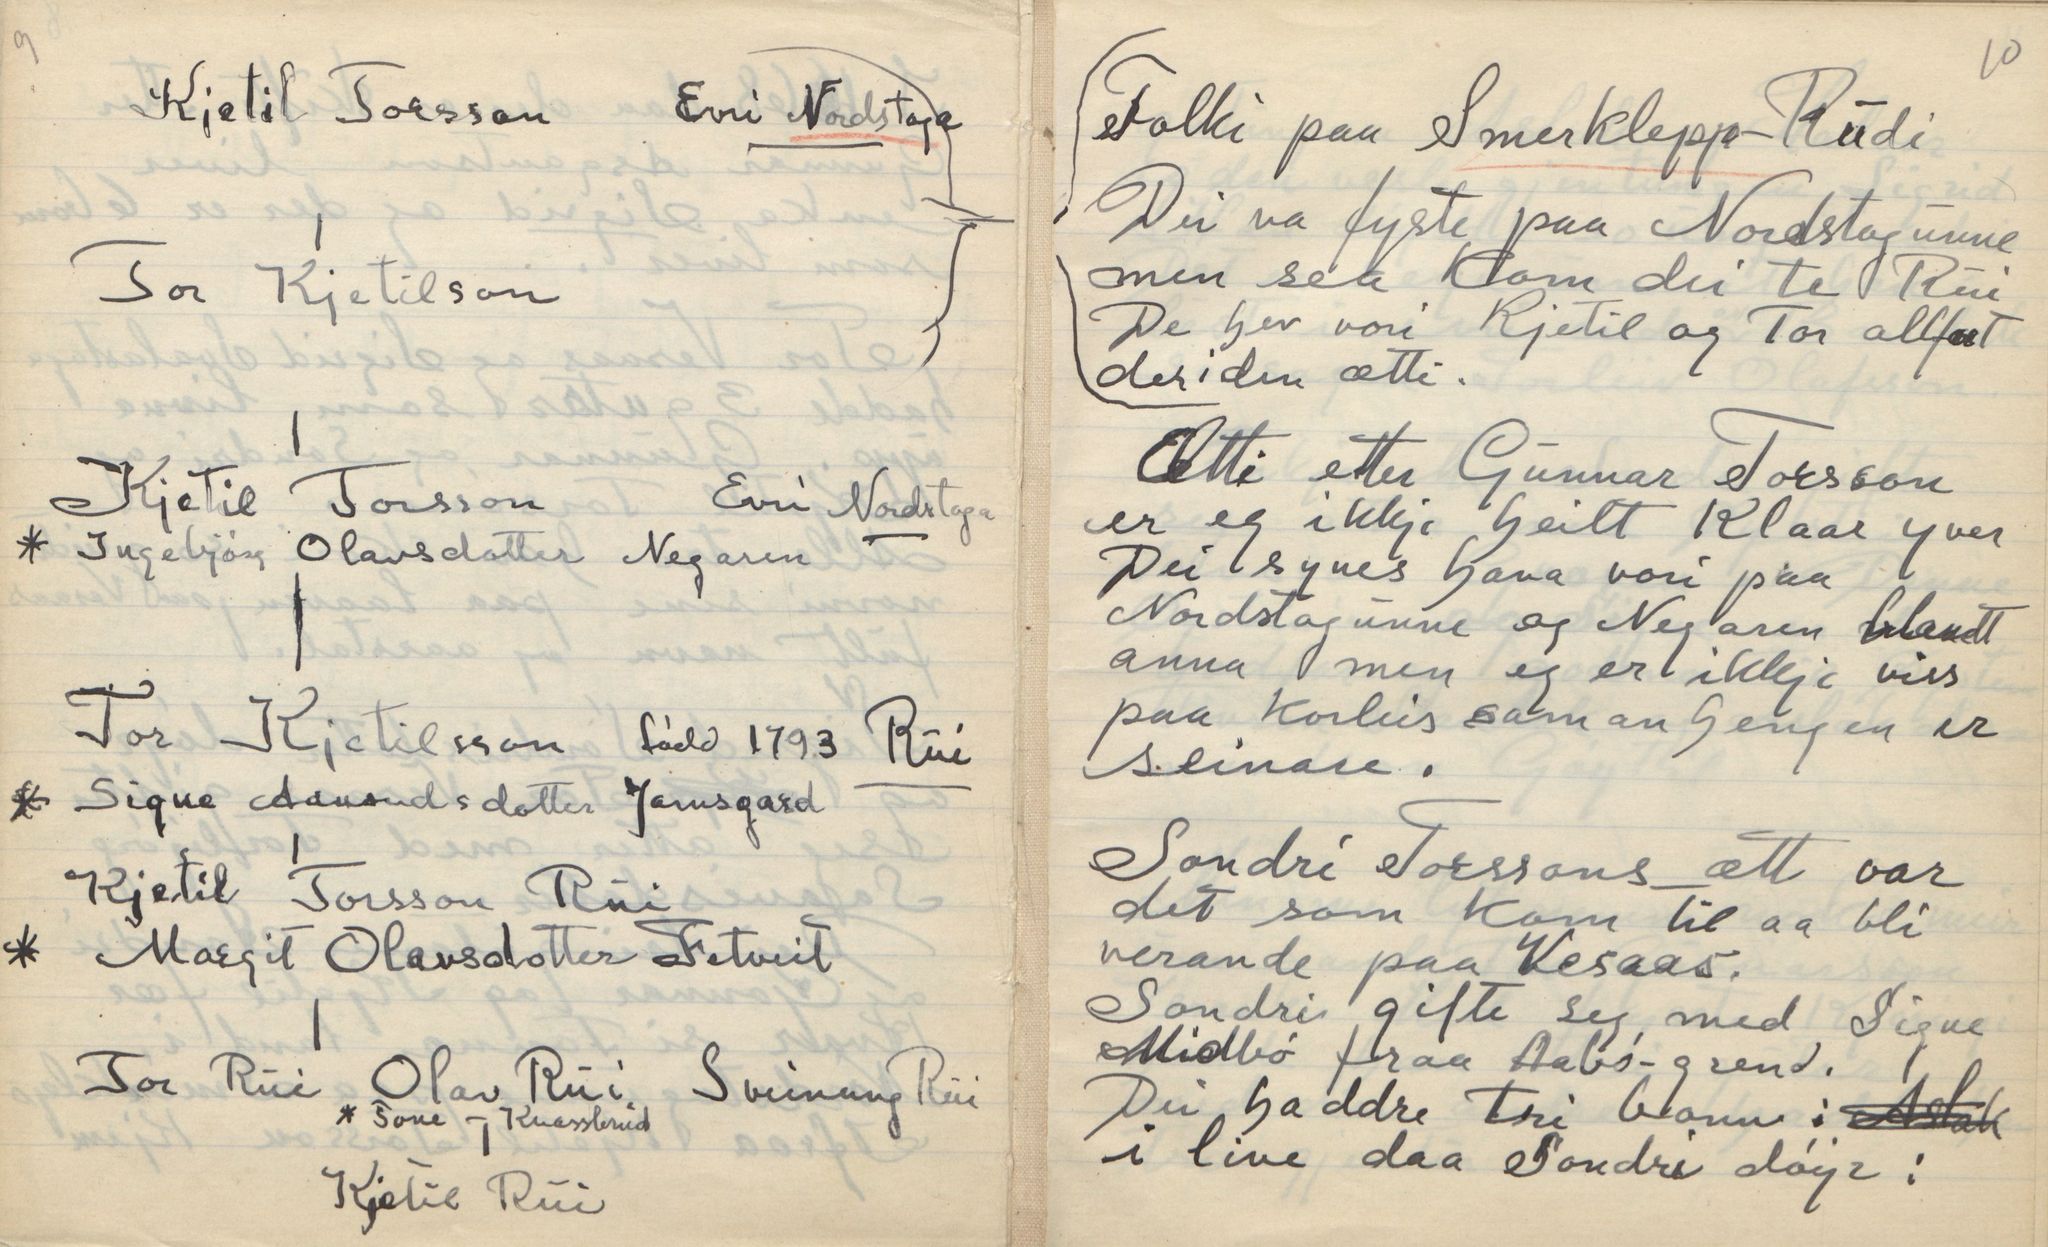 9
Kjetil Torsson Evri Nordstoga
Tor Kjetilson
Kjetil Torsson Evri Nordstoga
* Ingebjørg Olavsdotter Negaren
Tor Kjetilsson född 1793 Rūi
* Signe Aamundsdotter Jamsgard
Kjetil Torsson Rūi
* Margit Olavsdotter Fetveit
Tor Rūi Olav Rūi Sveinung Rūi
* Tone Knassberud
Kjetil Rūi
10
Folki paa Smerkleppa-Rūdi
Dei va fyste paa Nordstogūnne
men sea kom dei te Rūi
De hev vori Kjetil og Tor allfort
deriden ætti.
Ætti etter Gūnnar Torsson
er eg ikkje heilt klaar yver
Dei synes hava vori paa
Nordstogūnne og Negaren blandt
anna men eg er ikkje viss
paa korleis samanhengen er
seinare.
Sondri Torssons ætt var
det som kom til aa bli
verande paa Vesaas.
Sondri gifte seg med Signe
Midbó fraa Aabó-grend.
Dei haddre tri bonn i Aslak
i live daa Sondri dóyr :